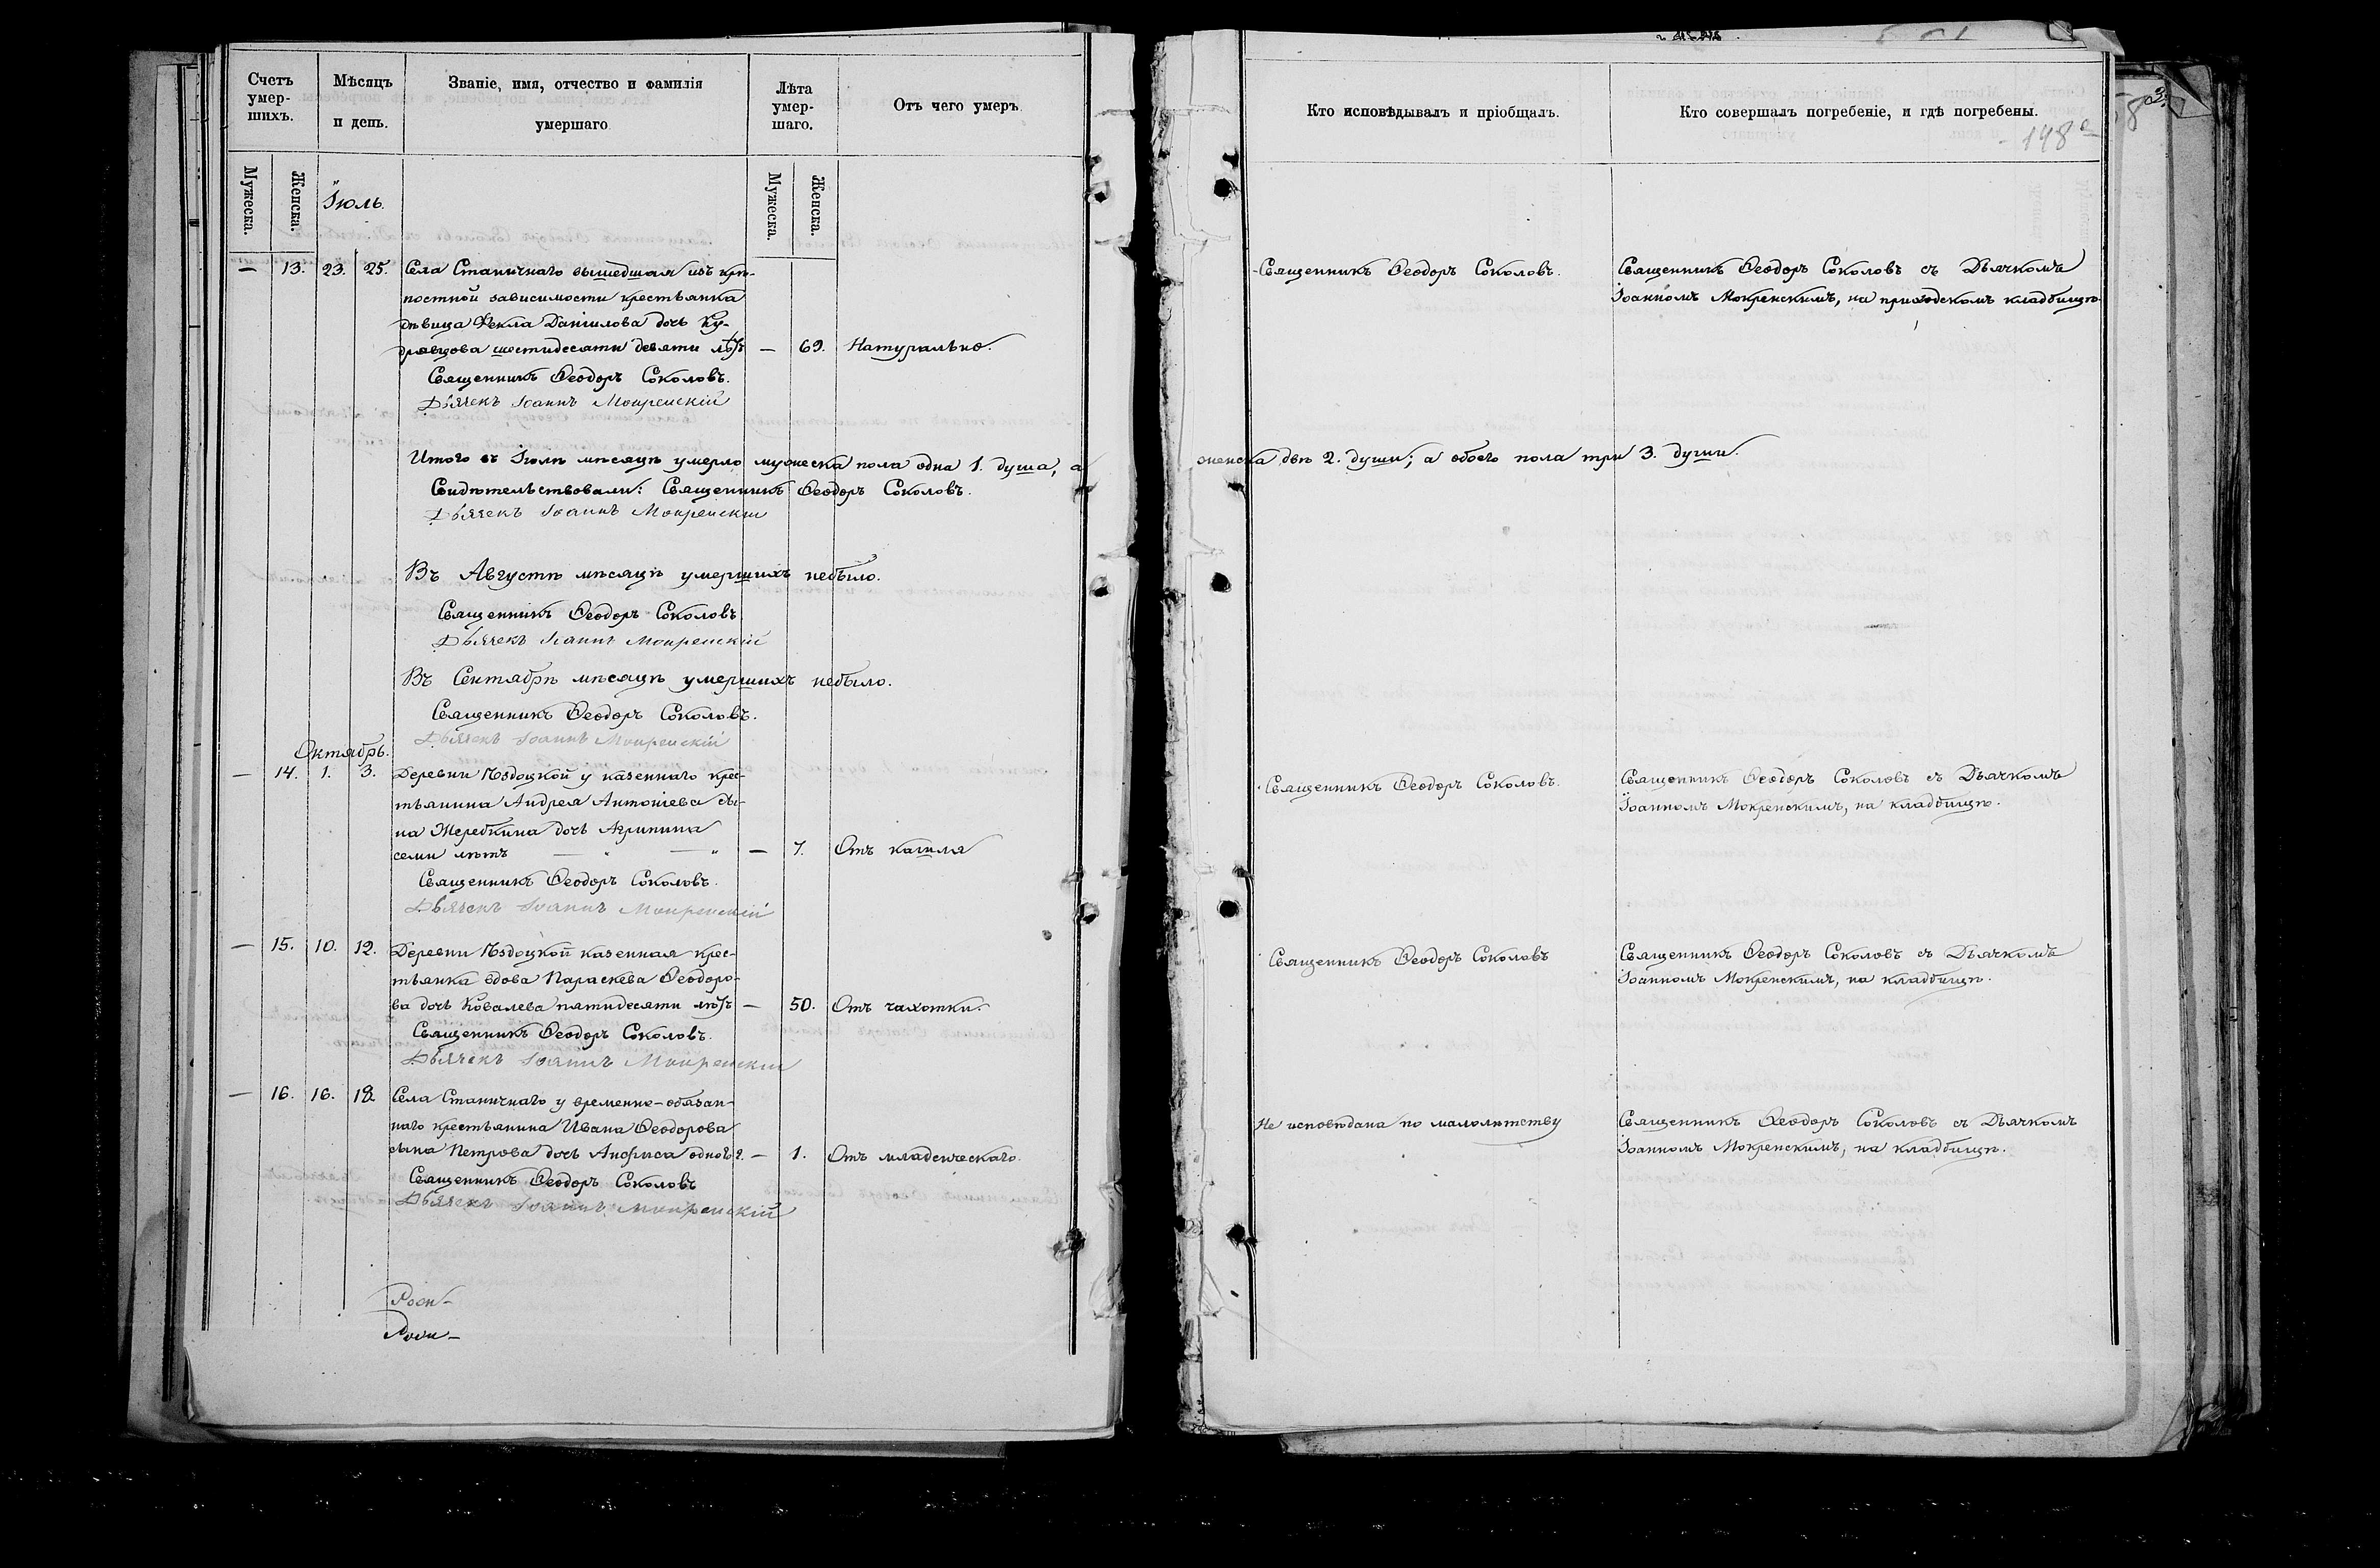 Счетъ умер-шихъ.
Мѣсяцъ и день.
Званіе, имя, отчество и фамилія умершаго
Лѣта умер-шаго.
Отъ чего умеръ
Мужеска.
Женска.
Іюль.
Мужеска.
Женска.
— 13. 23. 25. Села Станичнаго вышедшая изъ крѣ-
постной зависимости крестьянка
дѣвица Ѳекла Даніилова дочь Ку-
дрявцова шестидесяти девяти лѣтъ — 69. Натурально.
Священникъ Ѳеодоръ Соколовъ.
Дьячекъ Іоаннъ Мокренскій
Итого въ Іюлѣ мѣсяцѣ умерло мужеска пола одна 1. душа, а
Свидѣтельствовали: Священникъ Ѳеодоръ Соколовъ.
Дьячекъ Іоаннъ Мокренскій
Въ Августѣ мѣсяцѣ умершихъ небыло.
Священникъ Ѳеодоръ Соколовъ
Дьячекъ Іоаннъ Мокренскій
Въ Сентябрѣ мѣсяцѣ умершихъ небыло.
Священникъ Ѳеодоръ Соколовъ.
Дьячекъ Іоаннъ Мокренскій
Октябрь.
— 14. 1. 3. Деревни Ѣздоцкой у казеннаго крес-
тьянина Андрея Антоніева сы-
на Жеребкина дочь Агрипина
семи лѣтъ — „ — „ — 7. Отъ кашля
Священникъ Ѳеодоръ Соколовъ.
Дьячекъ Іоаннъ Мокренскій
— 15. 10. 12. Деревни Ѣздоцкой казенная крес-
тьянка вдова Параскева Ѳеодоро-
ва дочь Ковалева пятидесяти лѣтъ — 50. Отъ чахотки.
Священникъ Ѳеодоръ Соколовъ.
Дьячекъ Іоаннъ Мокренскій
— 16. 16. 18. Села Станичнаго у временно-обязан-
наго крестьянина Ивана Ѳеодорова
сына Петрова дочь Анфиса одного г. — 1. Отъ младенческаго.
Священникъ Ѳеодоръ Соколовъ
Дьячекъ Іоаннъ Мокренскій
Кто исповѣдывалъ и пріобщалъ.
Кто совершалъ погребеніе, и гдѣ погребены.
148
Священникъ Ѳеодоръ Соколовъ.
Священникъ Ѳеодоръ Соколовъ съ Дьячкомъ
Іоанномъ Мокренскимъ, на приходскомъ кладбищѣ
женска двѣ 2. души; а обоего пола три 3. души.
Священникъ Ѳеодоръ Соколовъ.
Священникъ Ѳеодоръ Соколовъ съ Дьячкомъ
Іоанномъ Мокренскимъ, на кладбищѣ.
Священникъ Ѳеодоръ Соколовъ
Священникъ Ѳеодоръ Соколовъ съ Дьячкомъ
Іоанномъ Мокренскимъ, на кладбищѣ.
Не исповѣдана по малолѣтству
Священникъ Ѳеодоръ Соколовъ съ Дьячкомъ
Іоанномъ Мокренскимъ, на кладбищѣ.